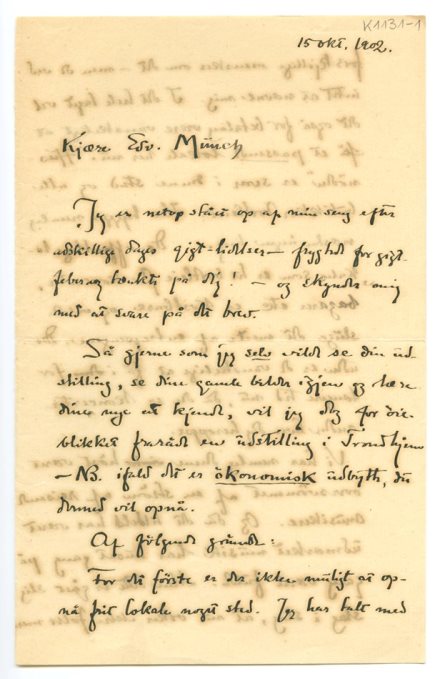 K1131-1
15 Okt. 1902.
Kjære Edv. Münch
Jeg er netop stået op af min seng efter
adskillige dages gigt-lidelser – frygted for gigt-
feber og tænkte på dig! – og skynder mig
med at svare på dit brev.
Så gjerne som jeg selv vilde se din ud
stilling, se dine gamle billeder igjen og lære
dine nye at kjende, vil jeg dog for öie-
blikket fraråde en üdstilling i Trondhjem
– NB. ifald det er ökonomisk üdbytte, dü
dermed vil opnå.
Af fölgende gründe:
For det förste er der ikke müligt at op-
nå frit lokale noget sted. Jeg har talt med